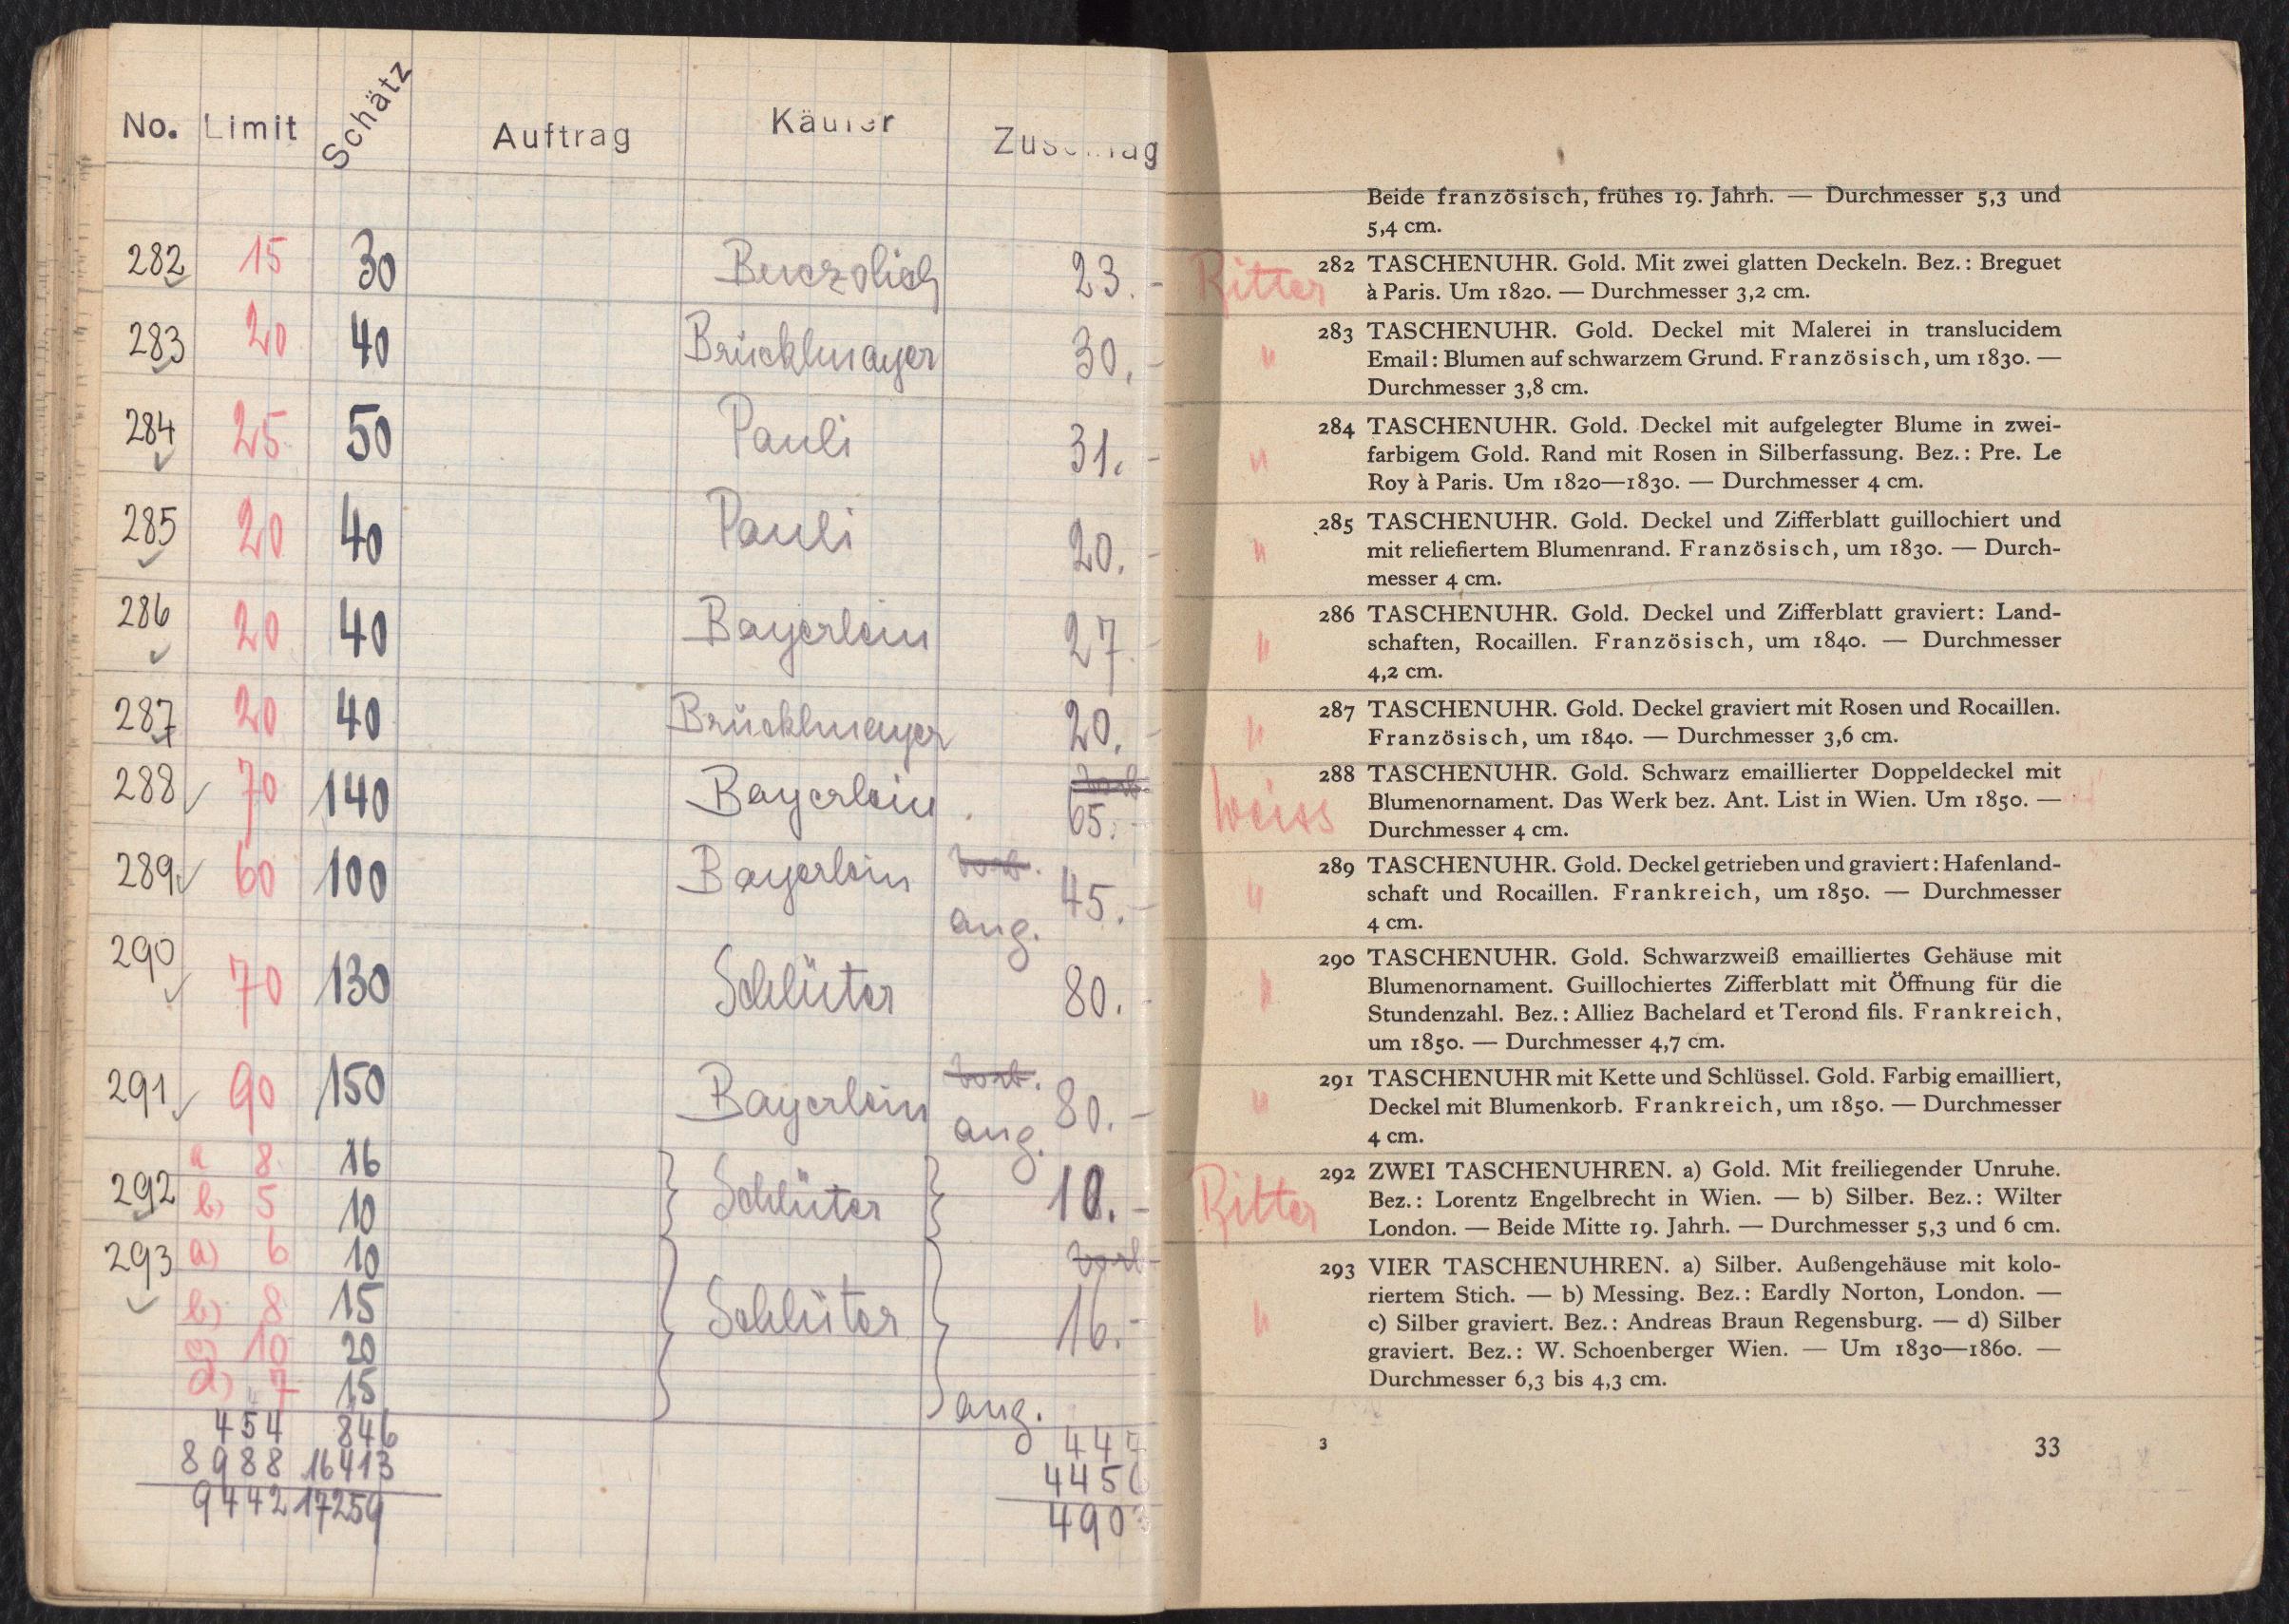 No. Limit Schätz Auftrag Käufer Zuschlag
282 15 30 23.-
283 20 40 Brücklmayer 30.-
284 25 50 Pauli 31.-
285 20 40 Pauli 20.-
286 20 40 Bayerlein 27.-
287 20 40 Brücklmayer 20.-
288 70 140 Bayerlein 65.-
289 60 100 Bayerlein vorb. 45.-
ang.
290 70 130 Schlüter 80.-
291 90 150 Bayerlein vorb. 80.-
ang.
292 a 8 16 Schlüter 10.-
b) 5 10
293 a) 6 10 Schlüter vorb. 16.-
b) 8 15
c) 10 20
d) 7 15
ang.
454 846 447
8988 16413 4456
9442 17259 4903
Beide französisch, frühes 19. Jahrh. — Durchmesser 5,3 und
5,4 cm.
Ritter
282 TASCHENUHR. Gold. Mit zwei glatten Deckeln. Bez.: Breguet
à Paris. Um 1820. — Durchmesser 3,2 cm.
"
283 TASCHENUHR. Gold. Deckel mit Malerei in translucidem
Email: Blumen auf schwarzem Grund. Französisch, um 1830. —
Durchmesser 3,8 cm.
"
284 TASCHENUHR. Gold. Deckel mit aufgelegter Blume in zwei-
farbigem Gold. Rand mit Rosen in Silberfassung. Bez.: Pre. Le
Roy à Paris. Um 1820—1830. — Durchmesser 4 cm.
"
285 TASCHENUHR. Gold. Deckel und Zifferblatt guillochiert und
mit reliefiertem Blumenrand. Französisch, um 1830. — Durch-
messer 4 cm.
"
286 TASCHENUHR. Gold. Deckel und Zifferblatt graviert: Land-
schaften, Rocaillen. Französisch, um 1840. — Durchmesser
4,2 cm.
"
287 TASCHENUHR. Gold. Deckel graviert mit Rosen und Rocaillen.
Französisch, um 1840. — Durchmesser 3,6 cm.
Weiss
288 TASCHENUHR. Gold. Schwarz emaillierter Doppeldeckel mit
Blumenornament. Das Werk bez. Ant. List in Wien. Um 1850. —
Durchmesser 4 cm.
"
289 TASCHENUHR. Gold. Deckel getrieben und graviert: Hafenland-
schaft und Rocaillen. Frankreich, um 1850. — Durchmesser
4 cm.
"
290 TASCHENUHR. Gold. Schwarzweiß emailliertes Gehäuse mit
Blumenornament. Guillochiertes Zifferblatt mit Öffnung für die
Stundenzahl. Bez.: Alliez Bachelard et Terond fils. Frankreich,
um 1850. — Durchmesser 4,7 cm.
"
291 TASCHENUHR mit Kette und Schlüssel. Gold. Farbig emailliert,
Deckel mit Blumenkorb. Frankreich, um 1850. — Durchmesser
4 cm.
Ritter
292 ZWEI TASCHENUHREN. a) Gold. Mit freiliegender Unruhe.
Bez.: Lorentz Engelbrecht in Wien. — b) Silber. Bez.: Wilter
London. — Beide Mitte 19. Jahrh. — Durchmesser 5,3 und 6 cm.
"
293 VIER TASCHENUHREN. a) Silber. Außengehäuse mit kolo-
riertem Stich. — b) Messing. Bez.: Eardly Norton, London. —
c) Silber graviert. Bez.: Andreas Braun Regensburg. — d) Silber
graviert. Bez.: W. Schoenberger Wien. — Um 1830—1860. —
Durchmesser 6,3 bis 4,3 cm.
3 33